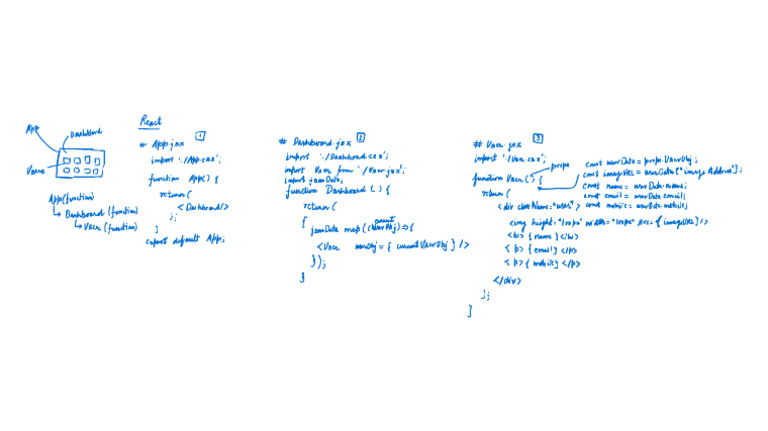 React
App
Dashboard
Users
App(function)
↳ Dashboard (function)
↳ User (function)
1
# App.jsx
import './App.css';
function App() {
return (
<Dashboard/>
);
}
export default App;
2
# Dashboard.jsx
import './Dashboard.css';
import User from './User.jsx';
import jsonData,
function Dashboard () {
return (
{
current
jsonData map((UserObj)=>{
<User userObj={currentUserObj} />
});
}
3
# User.jsx
import './User.css';
props
function User () {
return (
<div className="user">
<img height="100px" width="100px" src={imageUrl}/>
<h1> {name} </h1>
<p> {email} </p>
<p> {mobile} </p>
</div>
);
}
const userData = props.UserObj;
const imageUrl = userData["image Address"];
const name = userData.name;
const email = userData.email;
const mobile = userData.mobile;